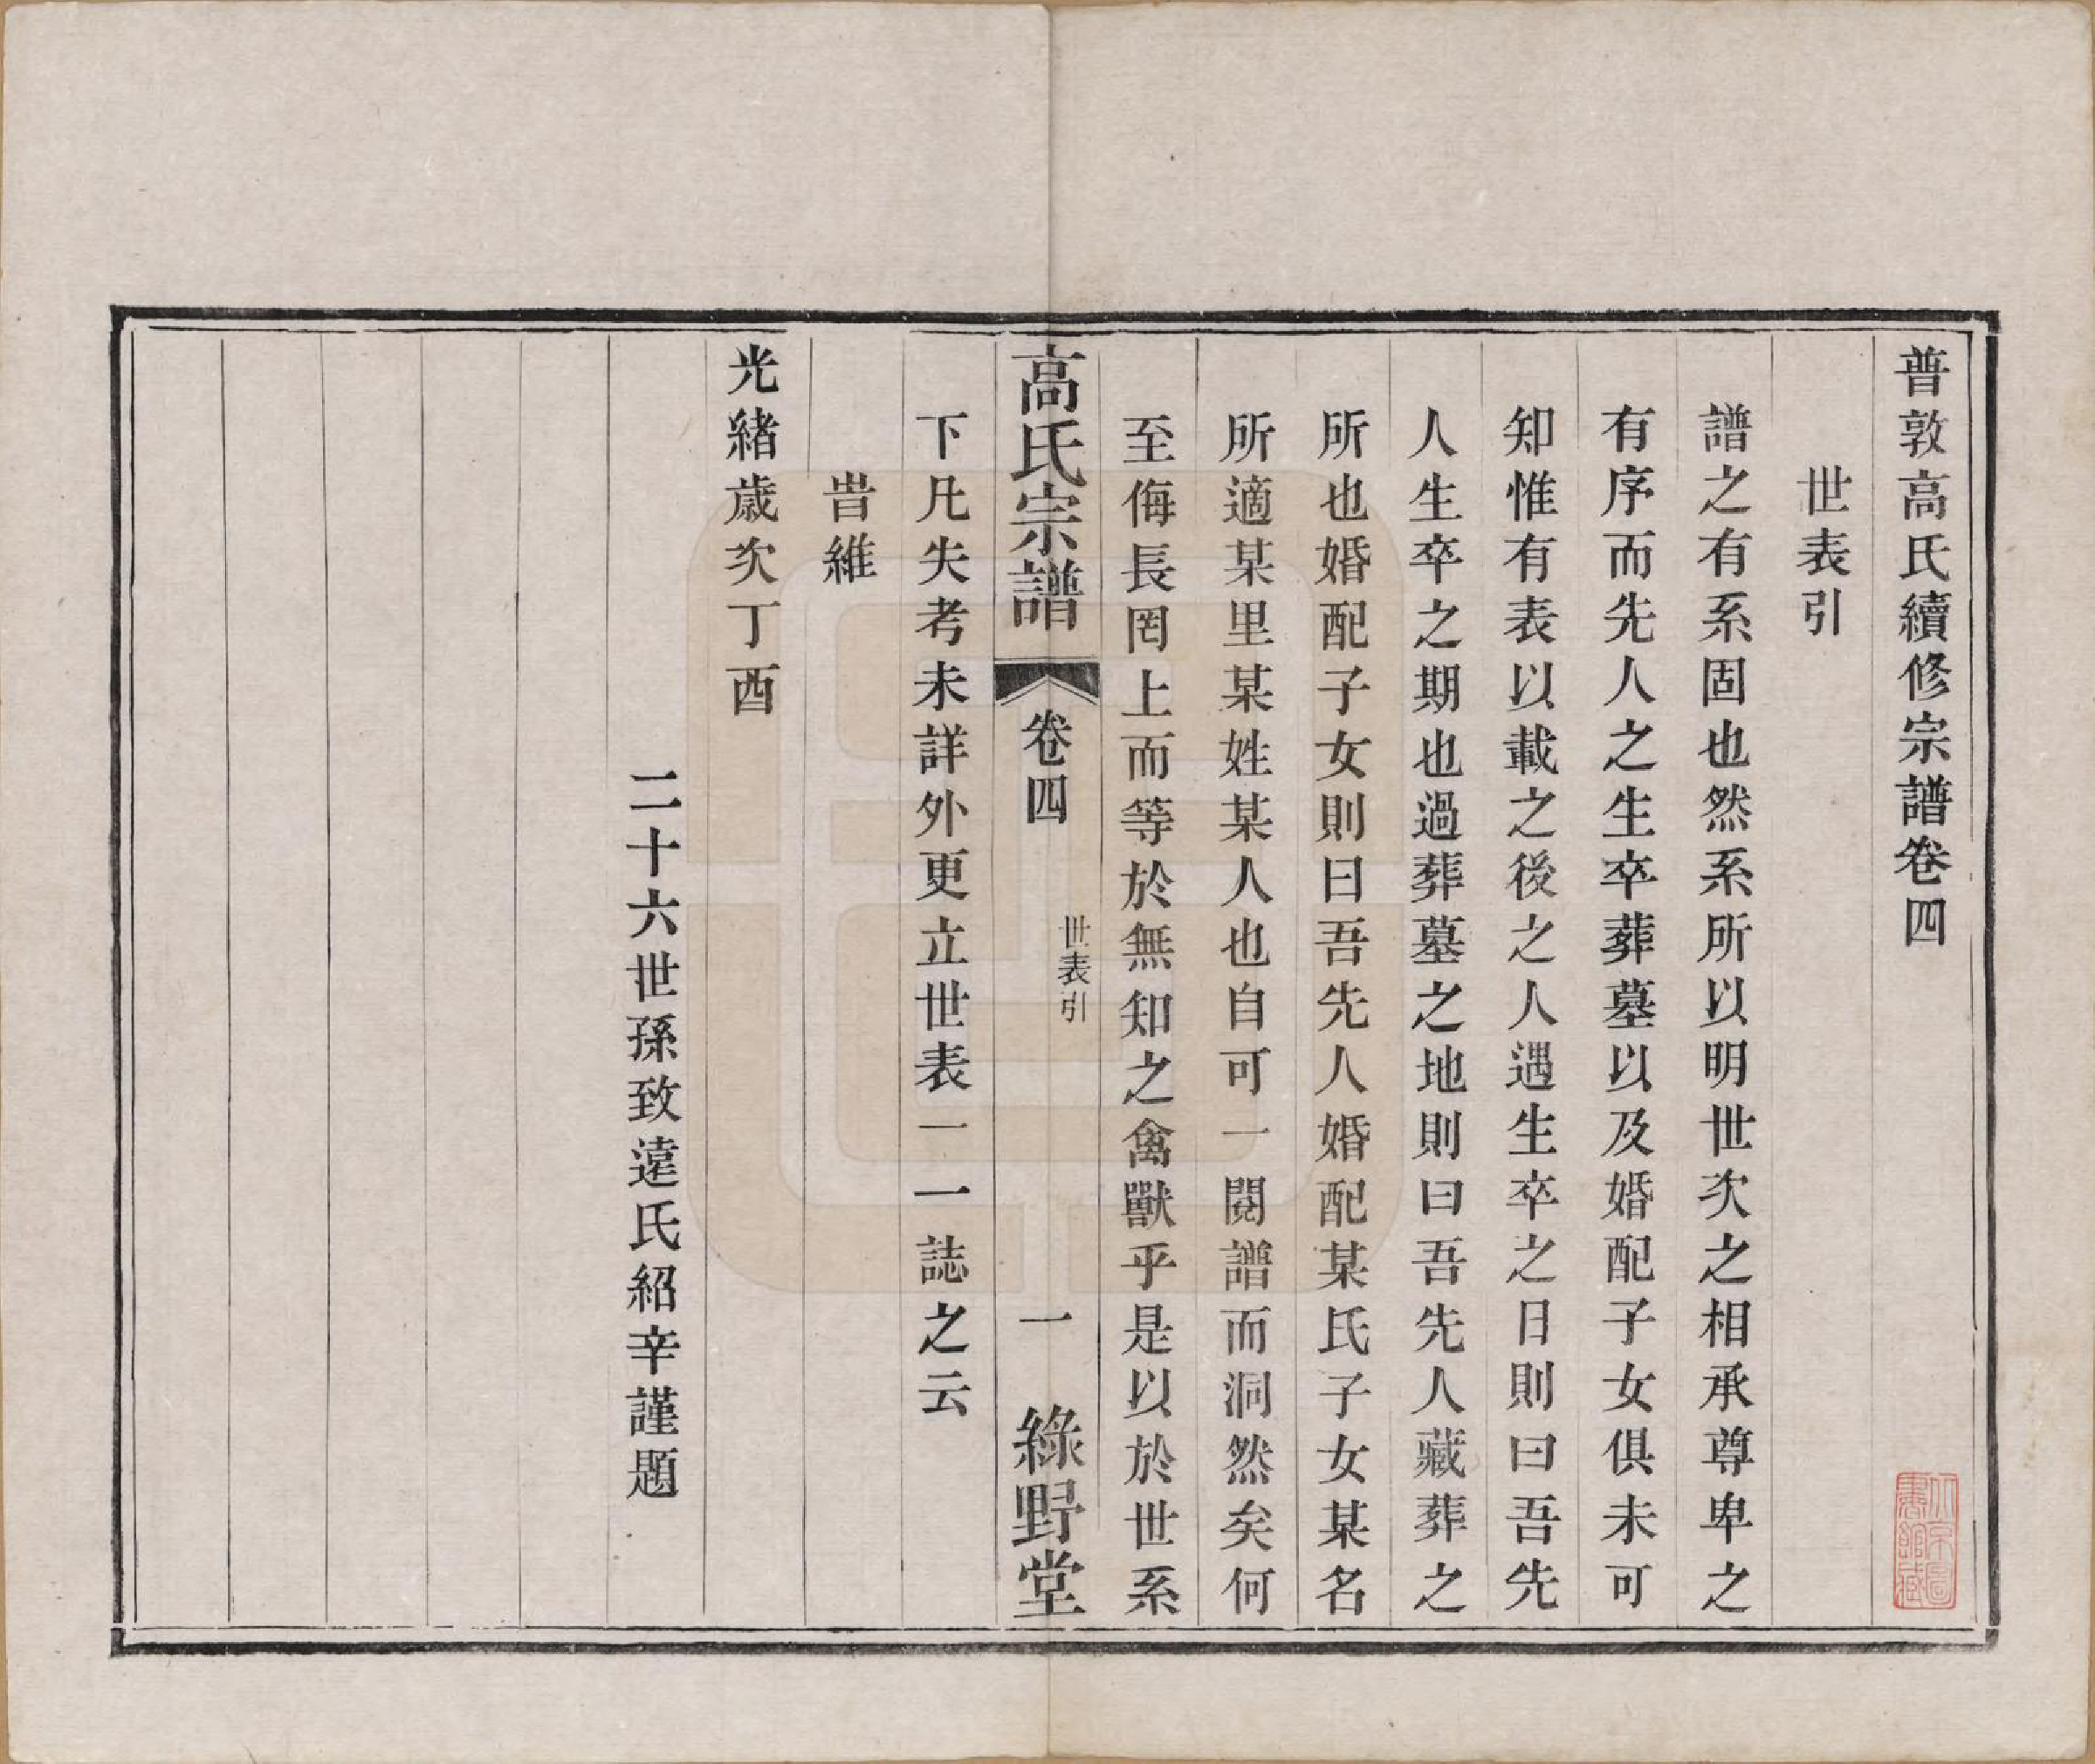 普敦高氏續修宗譜卷四
世表引
譜之有系固也然系所以明世次之相承尊卑之
有序而先人之生卒葬墓以及婚配子女俱未可
知惟有表以載之後之人遇生卒之日則曰吾先
人生卒之期也過葬墓之地則曰吾先人藏葬之
所也婚配子女則曰吾先人婚配某氏子女某名
所適某里某姓某人也自可一閱譜而洞然矣何
至侮長罔上而等於無知之禽獸乎是以於世系
高氏宗譜 卷四 世表引 一 綠野堂
下凡失考未詳外更立世表一一誌之云
旹維
光緒歲次丁酉
二十六世孫致遠氏紹辛謹題